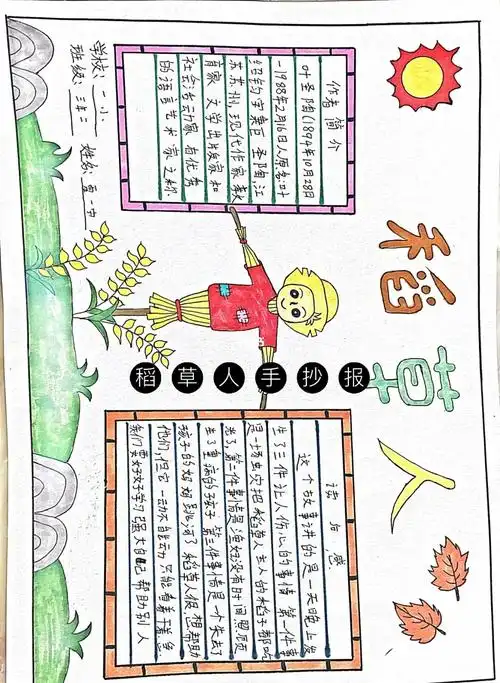 稻草人
作者简介
叶圣陶(1894年10月28日
-1988年2月16日)人原名叶
绍钧、字秉臣、圣陶,江
苏苏州,现代作家、教
育家、文学出版家和
社会活动家、有优秀
的语言艺术家之称
稻草人手抄报
读后感
这个故事讲的是一天晚上发
生了三件让人伤心的事情,第一件事
是一场虫灾把稻草人主人的稻子都吃
光了,第二件事情是渔妇没有时间照顾
生了重病的孩子,第三件事情是一个失去了
孩子的妈妈跳河了,稻草人很想帮助
他们,但它一动不能动,只能看着干着急
我们要好好学习强大自己帮助别人
学校:一小
班级:三班二 姓名: